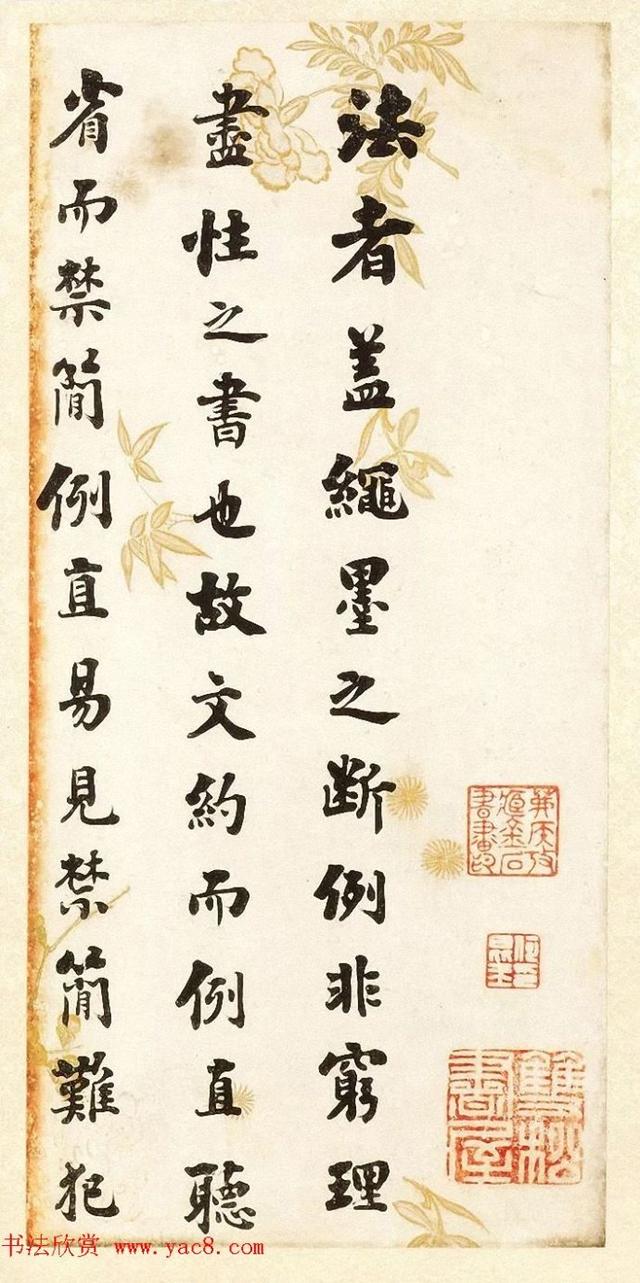 法者盖繩墨之斷例非窮理
盡性之書也故文約而例直聽
省而禁簡例直易見禁簡難犯
雙松書屋
书法欣赏 www.yac8.com